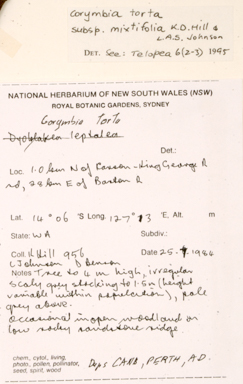 Corymbia torta
subsp. mixtifolia K.D. Hill &
L.A.S. Johnson
DET. See: Telopea 6(2-3) 1995
NATIONAL HERBARIUM OF NEW SOUTH WALES (NSW)
ROYAL BOTANIC GARDENS, SYDNEY
Corymbia torta
Det.:
Loc. 1.0 km N of - King George R
rd, 38 km E of Barton R
Lat. 14° 06 'S Long. 127° 13 'E. Alt. m
State: WA Subdiv.:
Coll. K Hill 956 Date 25.7.1984
L Johnson D Benson
Notes Tree to 4 m high, irregular
scaly grey stocking to 1.5m (height
variable within population), pale
grey above.
Occasional in open woodland on
low rocky sandstone ridge.
chem, cytol, living,
photo, pollen, pollinator,
seed, spirit, wood
Dups CANB, PERTH, AD.